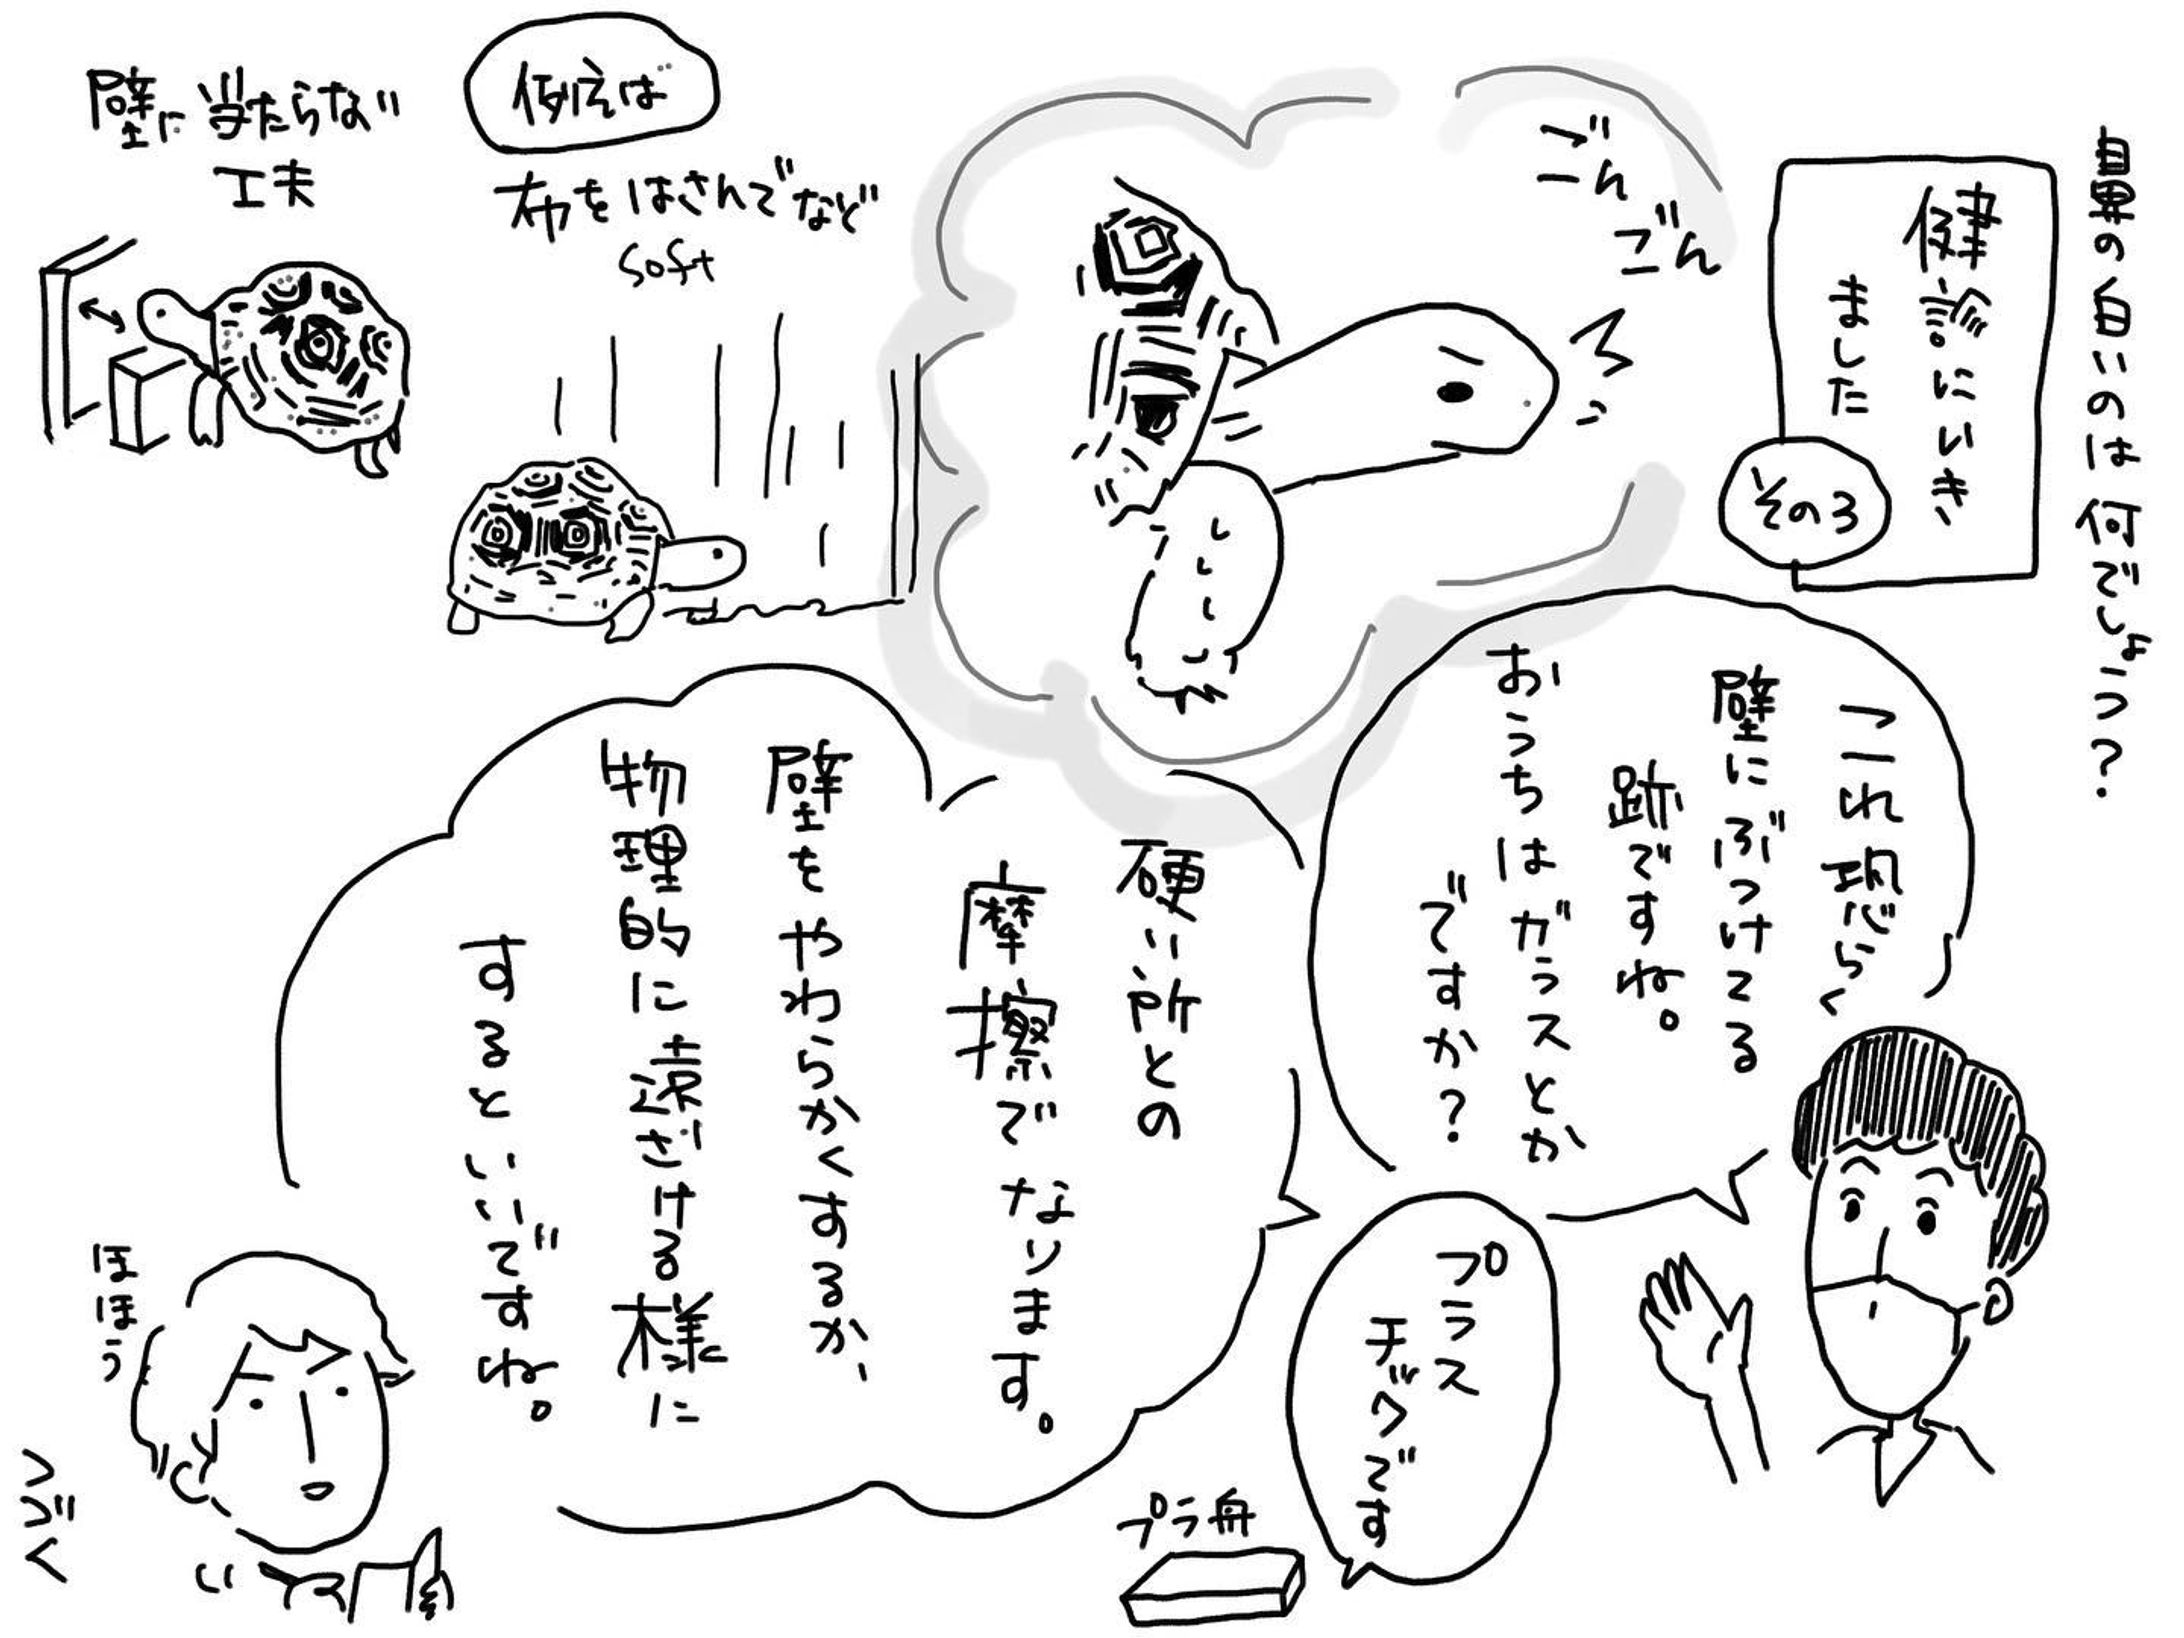 鼻の白いのは何でしょう?
健診にいき
ました
その3
ごん
ごん
これ恐らく
壁にぶつけてる
跡ですね。
おうちはガラスとか
ですか?
プラス
チックです
プラ舟
硬い所との
摩擦でなります。
壁をやわらかくするか、
物理的に遠ざける様に
するといいですね。
例えば
布をはさんでなど
soft
壁に当たらない
工夫
ほほう
つづく